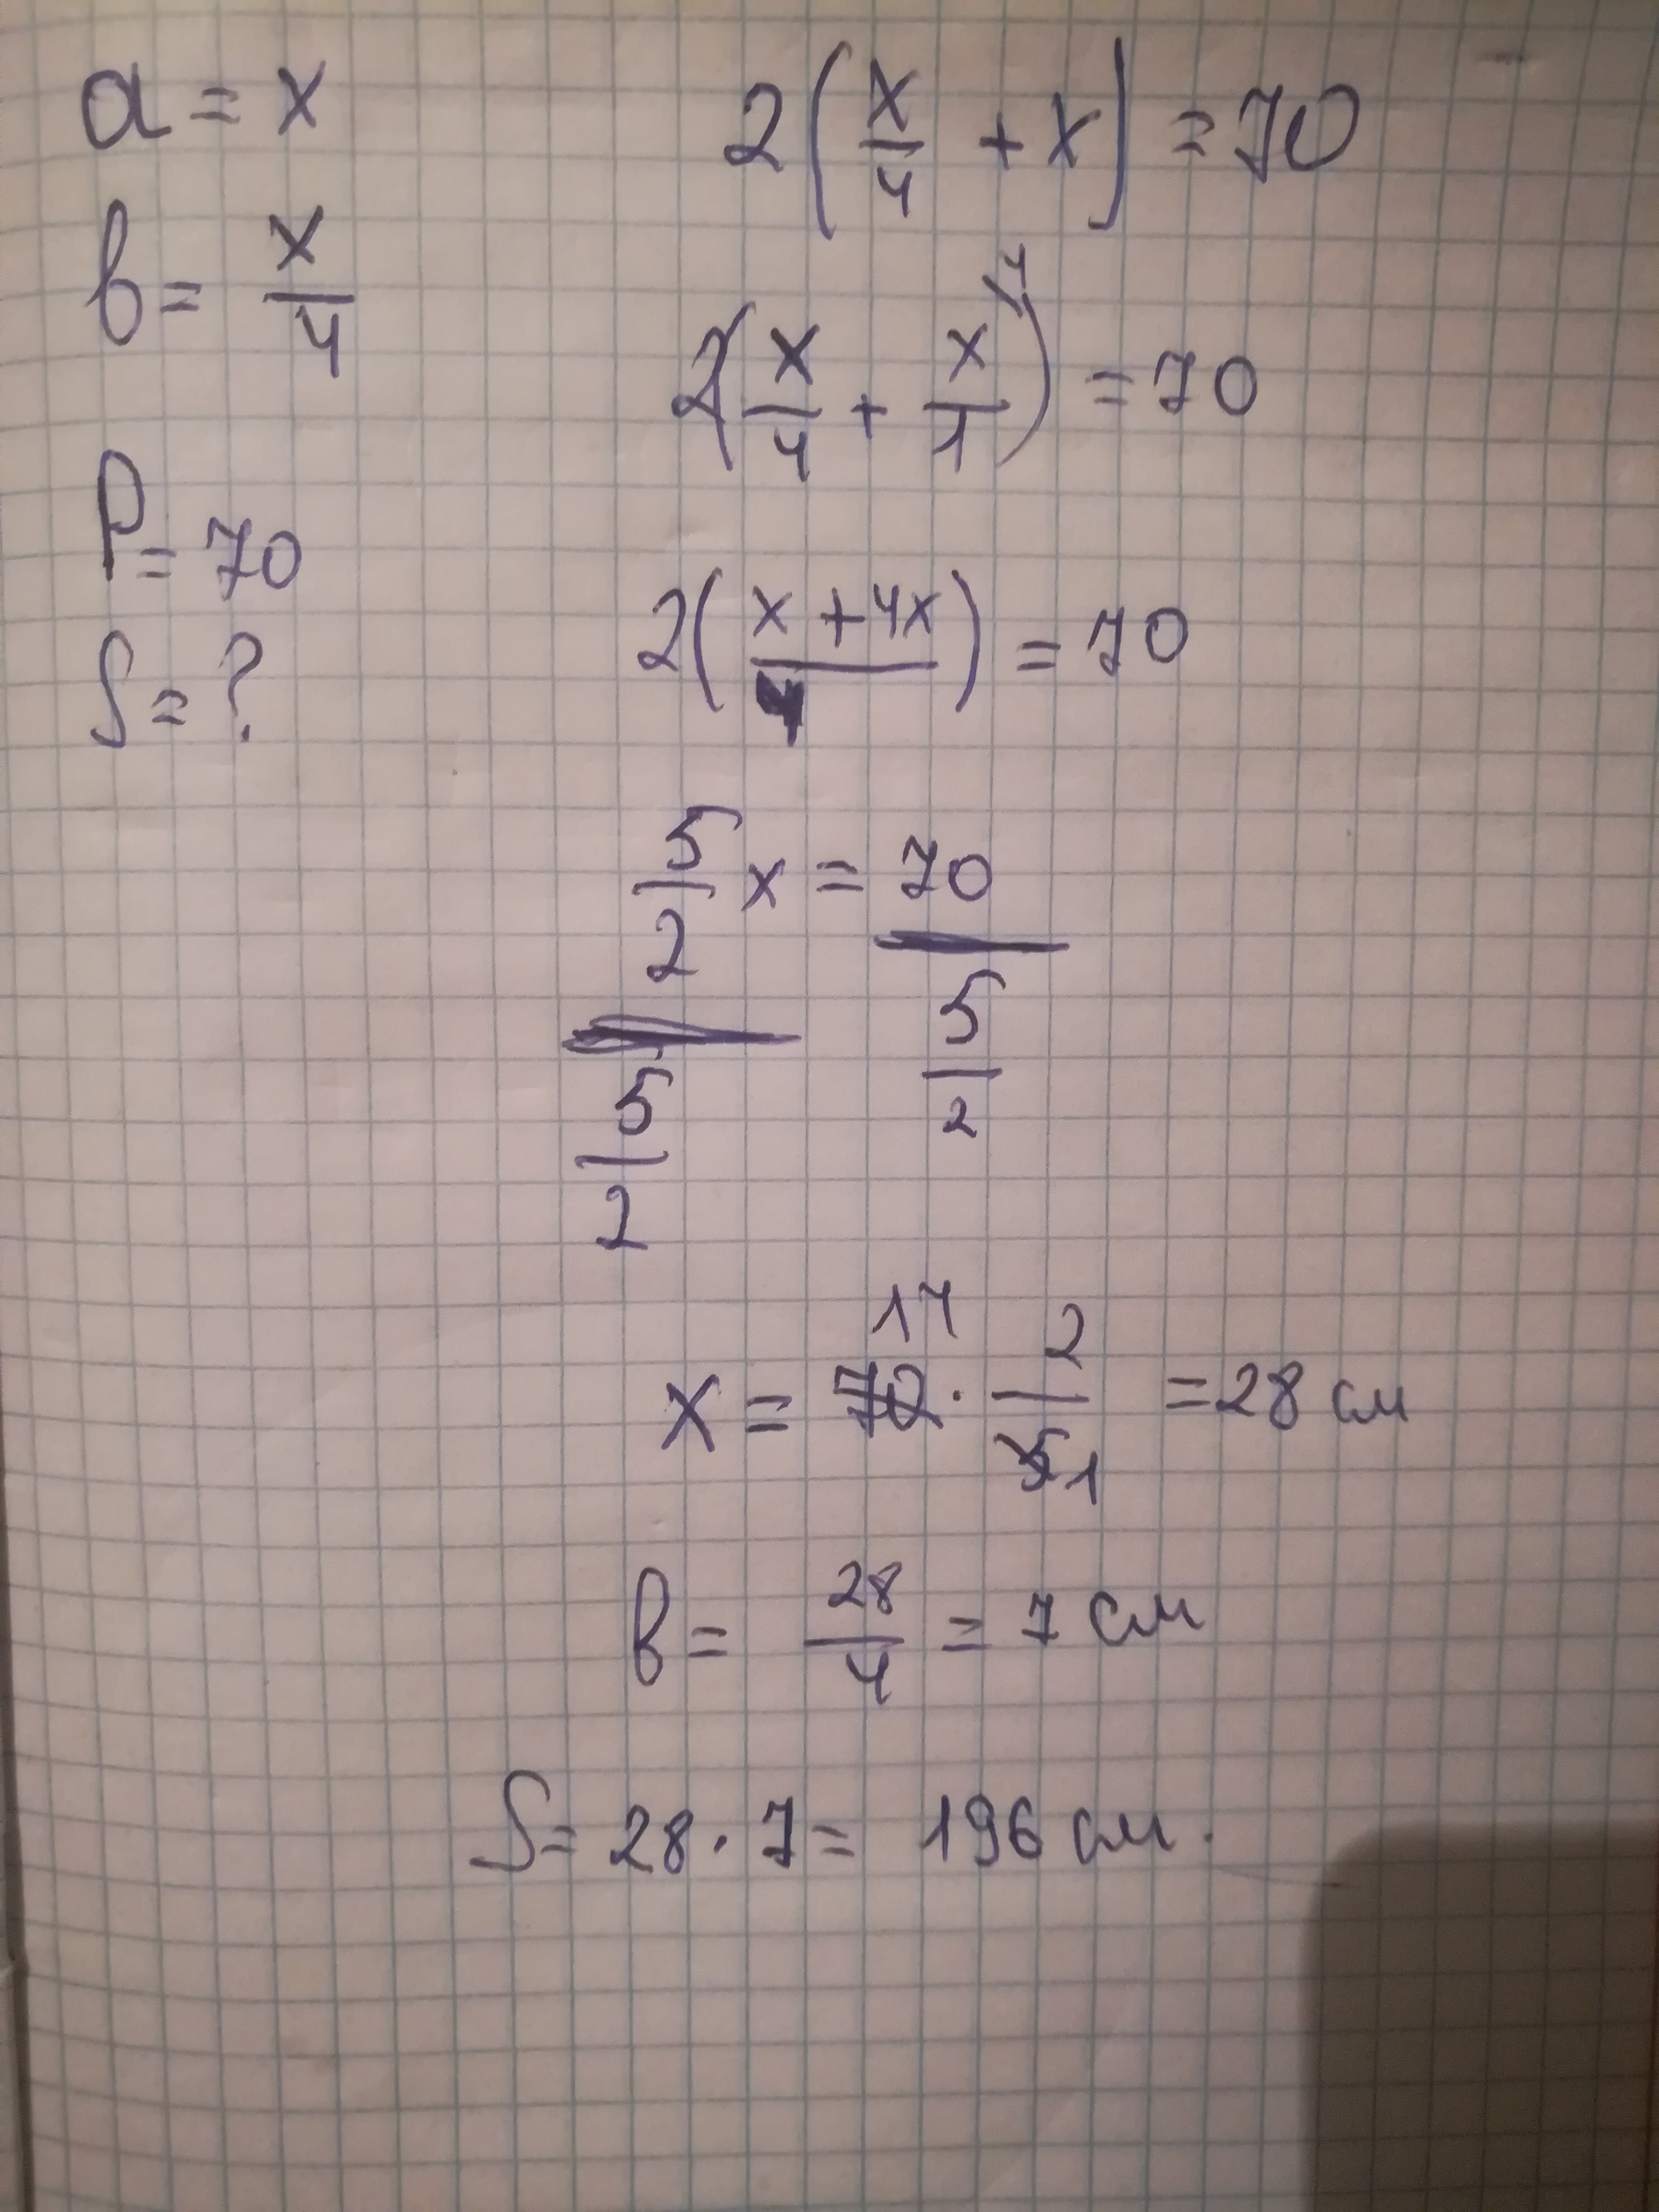 a = x
b = x/4
P = 70
S = ?
2(x/4 + x) = 70
2(x/4 + x/1)\4 = 70
2((x + 4x)/4) = 70
5/2 x = 70
5/2
5/2
x = 70 14 · 2/5 1 = 28 см
b = 28/4 = 7 см
S = 28 · 7 = 196 см.